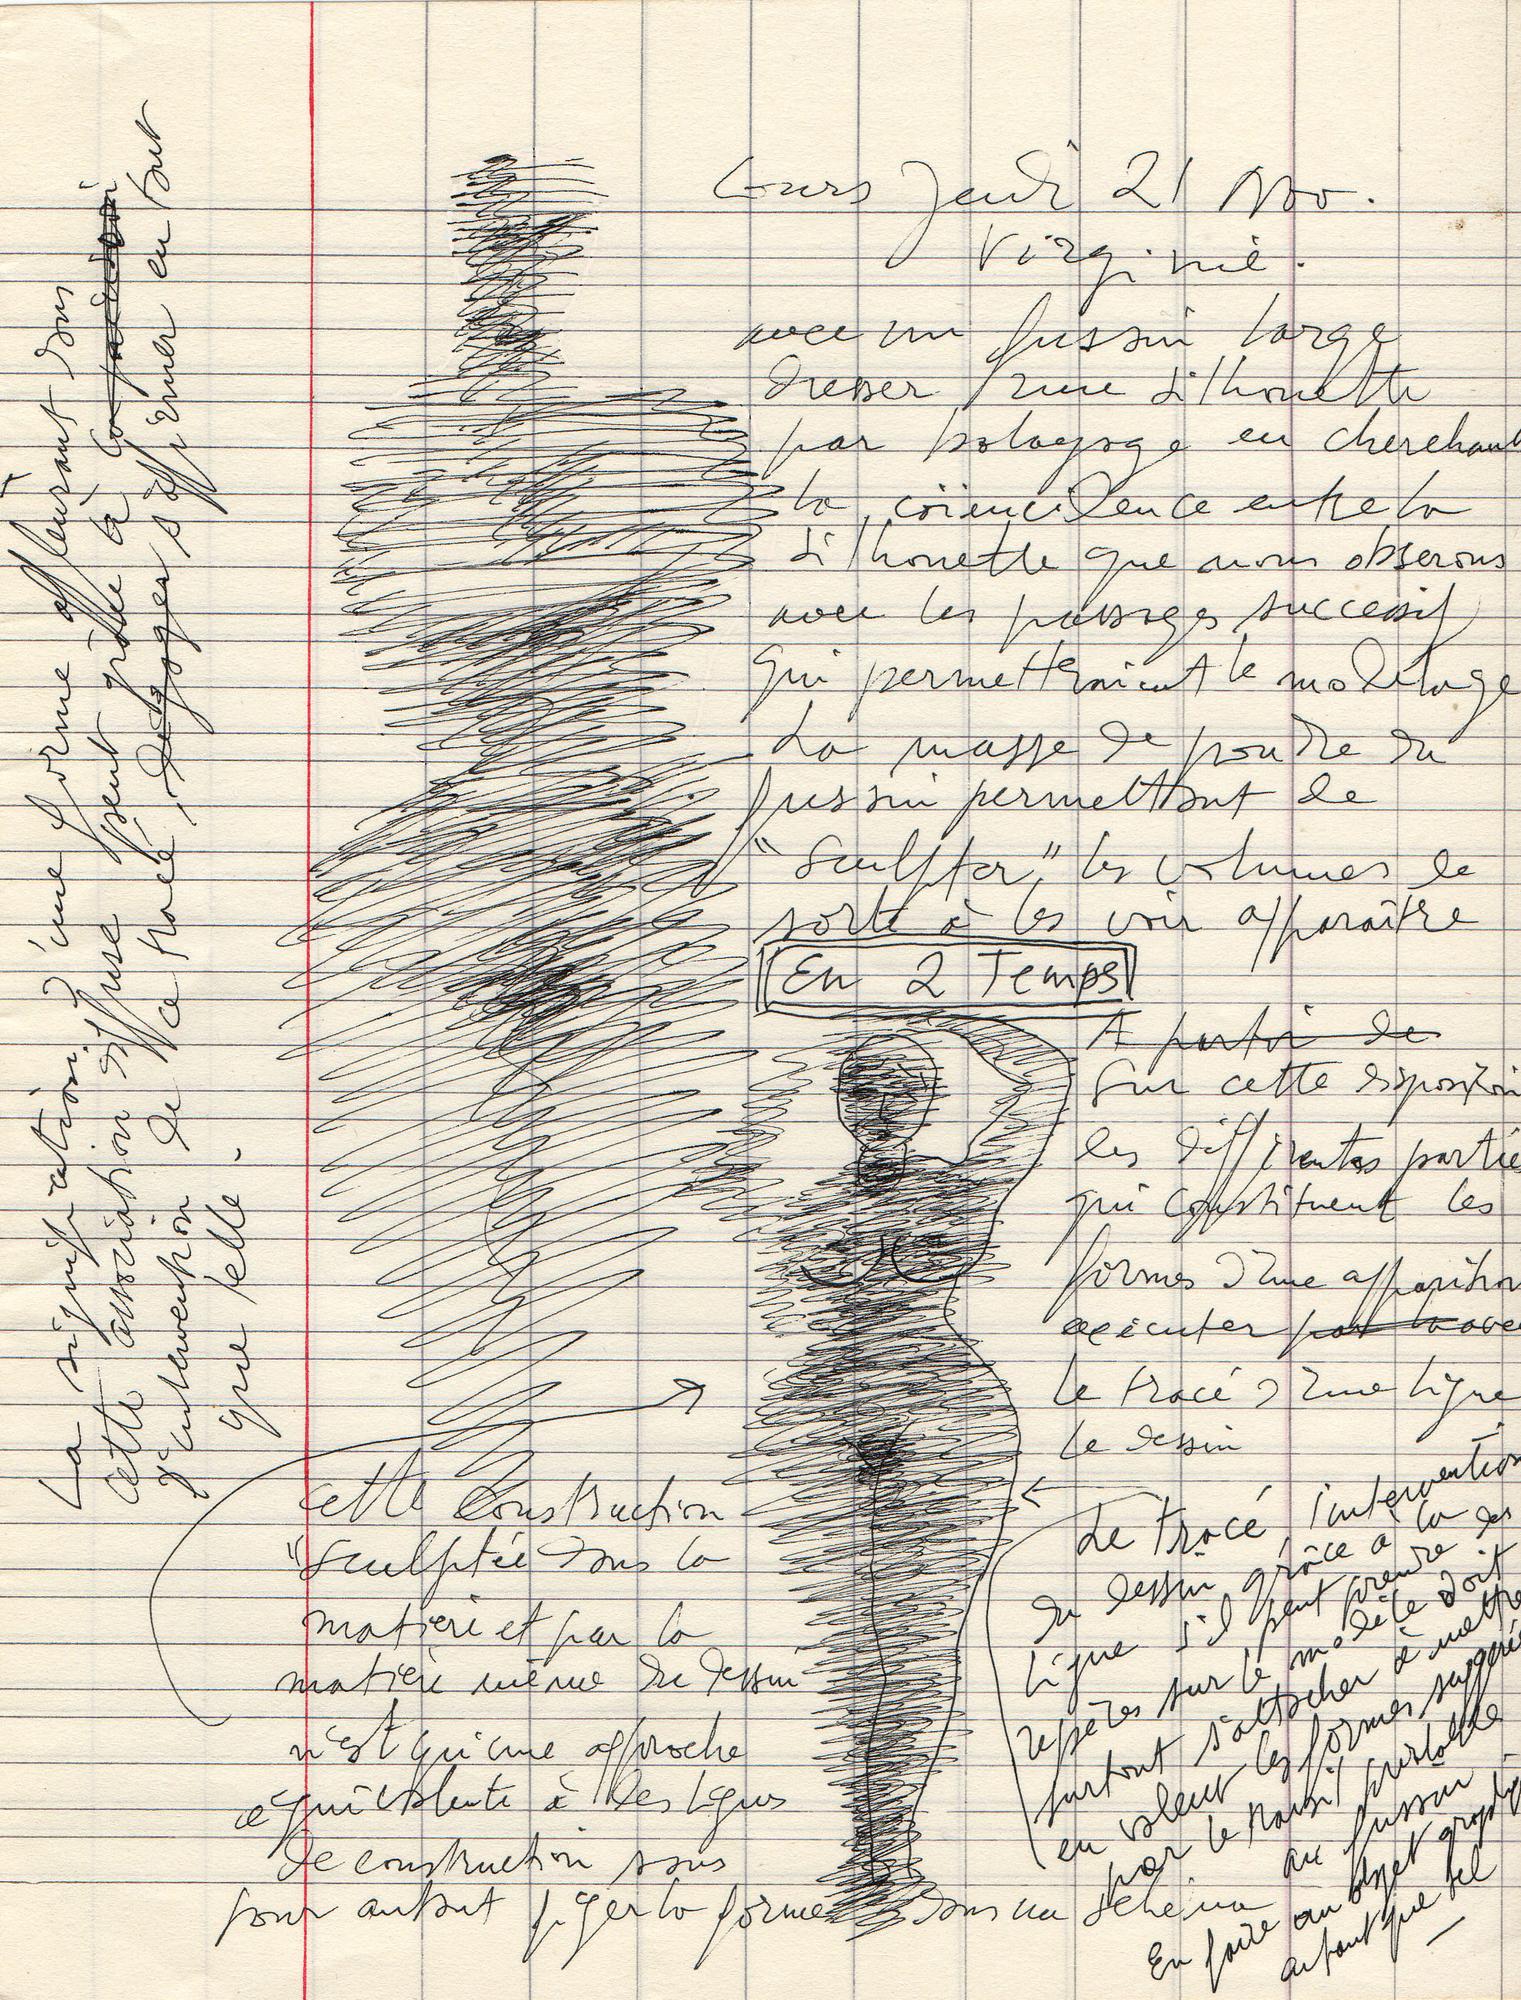 Cours Jeudi 21 Nov.
Virginie.
avec un fusain large
dresser une silhouette
par balayage en cherchant
la coïencidence entre la
silhouette que nous obserons
avec les passages successif
qui permettraient le modelage
La masse de poudre du
fussin permettant de
"Sculpter" les volumes de
sorte à les voir apparaître
En 2 Temps
A partir de
Sur cette disposition
les différentes partie
qui constituent les
formes d'une apparition
executer par la avec
le tracé d'une ligne
le dessin
cette construction
"sculptée dans la
matière et par la
matière même du dessin
n'est qu'une approche
equivalente à des lignes
de construction sans
pour autant figer la forme dans un schéma
Le tracé, l'intervention
du dessin grâce à la
ligne s'il peut prendre des
repères sur le modèle doit
surtout s'attacher à mettre
en valeur les formes suggérée
par le travail préalable
au fussain.
En faire un objet graphique
autant que tel
La signification d'une forme affleurant dans
cette association diffuse peut grâce à la précision
d'intervention de ce tracé, dégager s'affirmer en tout
que telle.